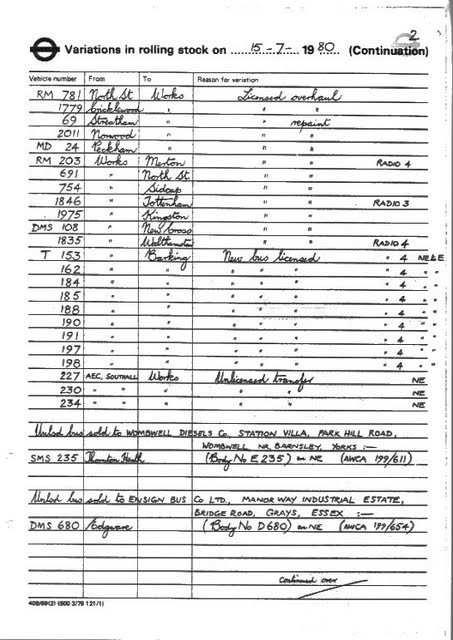 2
Variations in rolling stock on 15-7- 1980 (Continuation)
Vehicle number From To Reason for variation
RM 781 North St Works Licensed overhaul
1779 Cricklewood " " "
69 Streatham " " repaint
2011 Norwood " " "
MD 24 Peckham " " "
RM 203 Works Merton " " RADIO 4
691 " North St. " "
754 " Sidcup " "
1846 " Tottenham " " RADIO 3
1975 " Kingston " "
DMS 108 " New Cross " "
1835 " Walthamstow " " RADIO 4
T 153 " Barking New bus licensed " 4 NE&E
162 " " " " " " 4 " "
184 " " " " " " 4 " "
185 " " " " " " 4 " "
188 " " " " " " 4 " "
190 " " " " " " 4 " "
191 " " " " " " 4 " "
197 " " " " " " 4 " "
198 " " " " " " 4 " "
227 AEC, SOUTHALL Works Unlicensed transfer NE
230 " " " " " NE
234 " " " " " NE
Unlsd bus sold to WOMBWELL DIESELS Co. STATION VILLA, PARK HILL ROAD,
WOMBWELL NR. BARNSLEY, YORKS :—
SMS 235 Thornton Heath (Body No E 235) on NE (AWCA 199/611)
Unlsd bus sold to ENSIGN BUS Co LTD., MANOR WAY INDUSTRIAL ESTATE,
BRIDGE ROAD, GRAYS, ESSEX :—
DMS 680 Edgware (Body No D680) on NE (AWCA 199/654)
Continued over
408/69(2) (500 3/79 121/1)